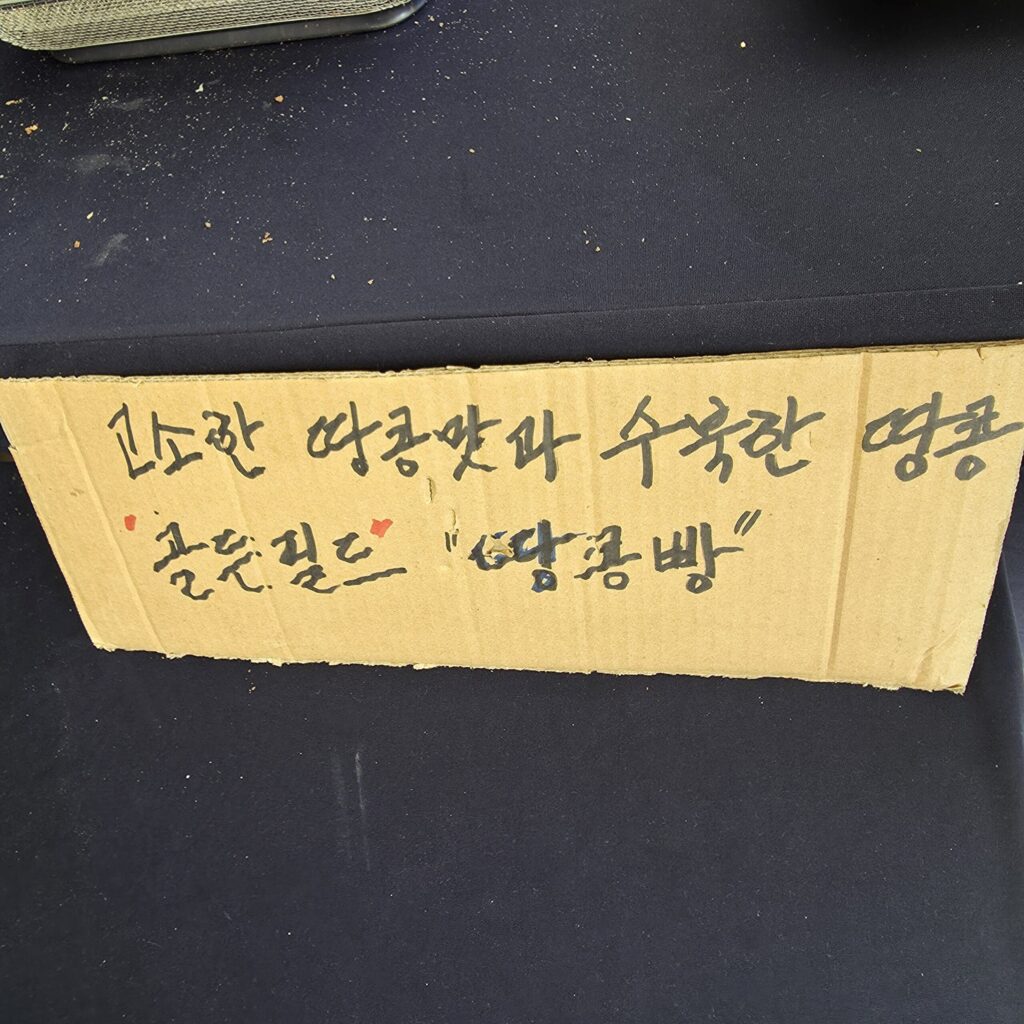 고소한 땅콩맛과 수북한 땅콩
골든필드 "땅콩빵"